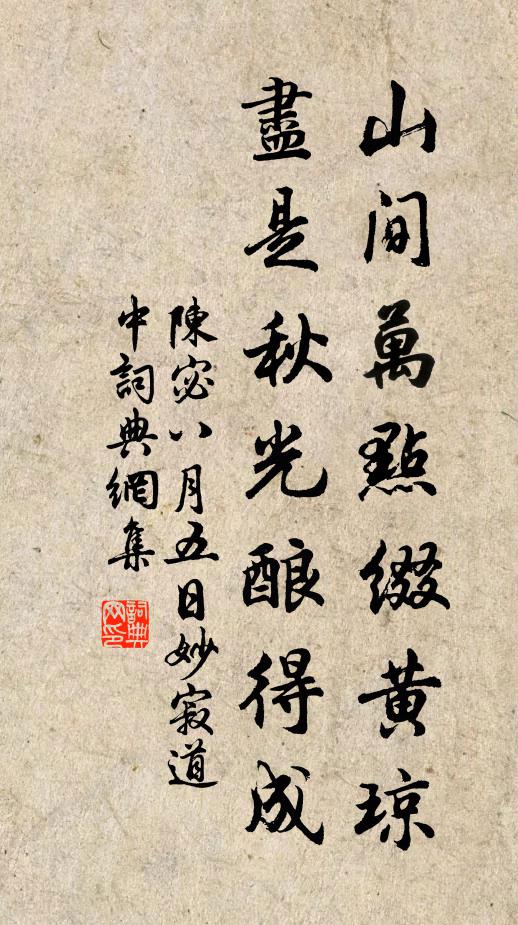 山间萬點缀黄琼
盡是秋光酿得成
陳宓八月五日妙寂道
中詞典網集
詞典网印